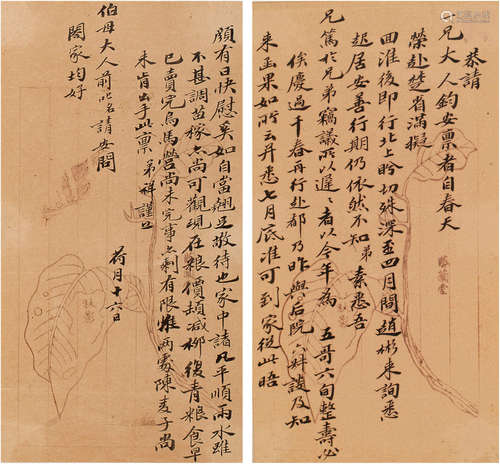 恭請
兄大人鈞安稟者自春天
榮赴楚省滿擬
回淮後即行北上盼切殊深至四月間趙彬來詢悉
起居安善行期仍依然不知弟素悉吾
兄篤於兄弟竊議所以遲遲者以今年為五哥六旬整壽必
俟慶過千春再行赴都乃昨與后院六姊談及知
來玉果如所云并悉七月底准可到家從此晤
頗有日快慰奚如自當翹足敬待也家中諸凡平順雨水雖
不甚調苗稼亦尚可觀現在粮價頗減柳復青粮食早
已賣完烏馬營尚未完事亦剩有限惟兩處陳麦子尚
未肯出手此稟弟祥謹上
伯母大人前叱名請安閤
閤家均好
荷月十六日